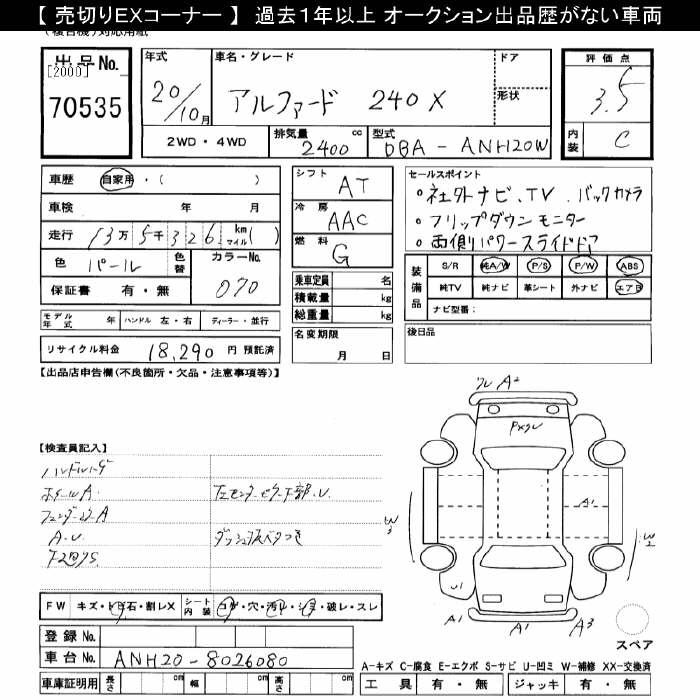 【 売切りEXコーナー 】 過去１年以上 オークション出品歴がない車両
(複合機)対応用紙
出品No.
[2000]
70535
年式
20/10月
車名・グレード
アルファード 240X
ドア
形状
2WD・4WD
排気量
2400 cc
型式
DBA - ANH20W
評価点
3.5
内装
C
車歴 自家用・( )
車検 年 月
走行 13万5千326 km マイル( )
色 パール
色替
カラーNo.
070
保証書 有・無
モデル年式 年
ハンドル 左・右
ディーラー・並行
リサイクル料金 18,290 円 預託済
シフト AT
冷房 AAC
燃料 G
乗車定員 名
積載量 kg
総重量 kg
名変期限
月 日
セールスポイント
。社外ナビ、TV、バックカメラ
。フリップダウンモニター
。両側パワースライドドア
装備品
S/R 純A/W P/S P/W ABS
純TV 純ナビ 革シート 外ナビ エアB
ナビ型番：
後日品
【出品店申告欄(不良箇所・欠品・注意事項等)】
【検査員記入】
ホイールA
A.U
左センターピラー下部.U
A2
A1
W3
W2
U1
A1
A1
A3
スペア
FW キズ・トビ石・割レX
シート内装 コゲ・穴・汚レ・シミ・破レ・スレ
登録No.
車台No. ANH20-8026080
車庫証明用 長さ cm 幅 cm 高さ cm
A-キズ C-腐食 E-エクボ S-サビ U-凹ミ W-補修 XX-交換済
工具 有・無 ジャッキ 有・無